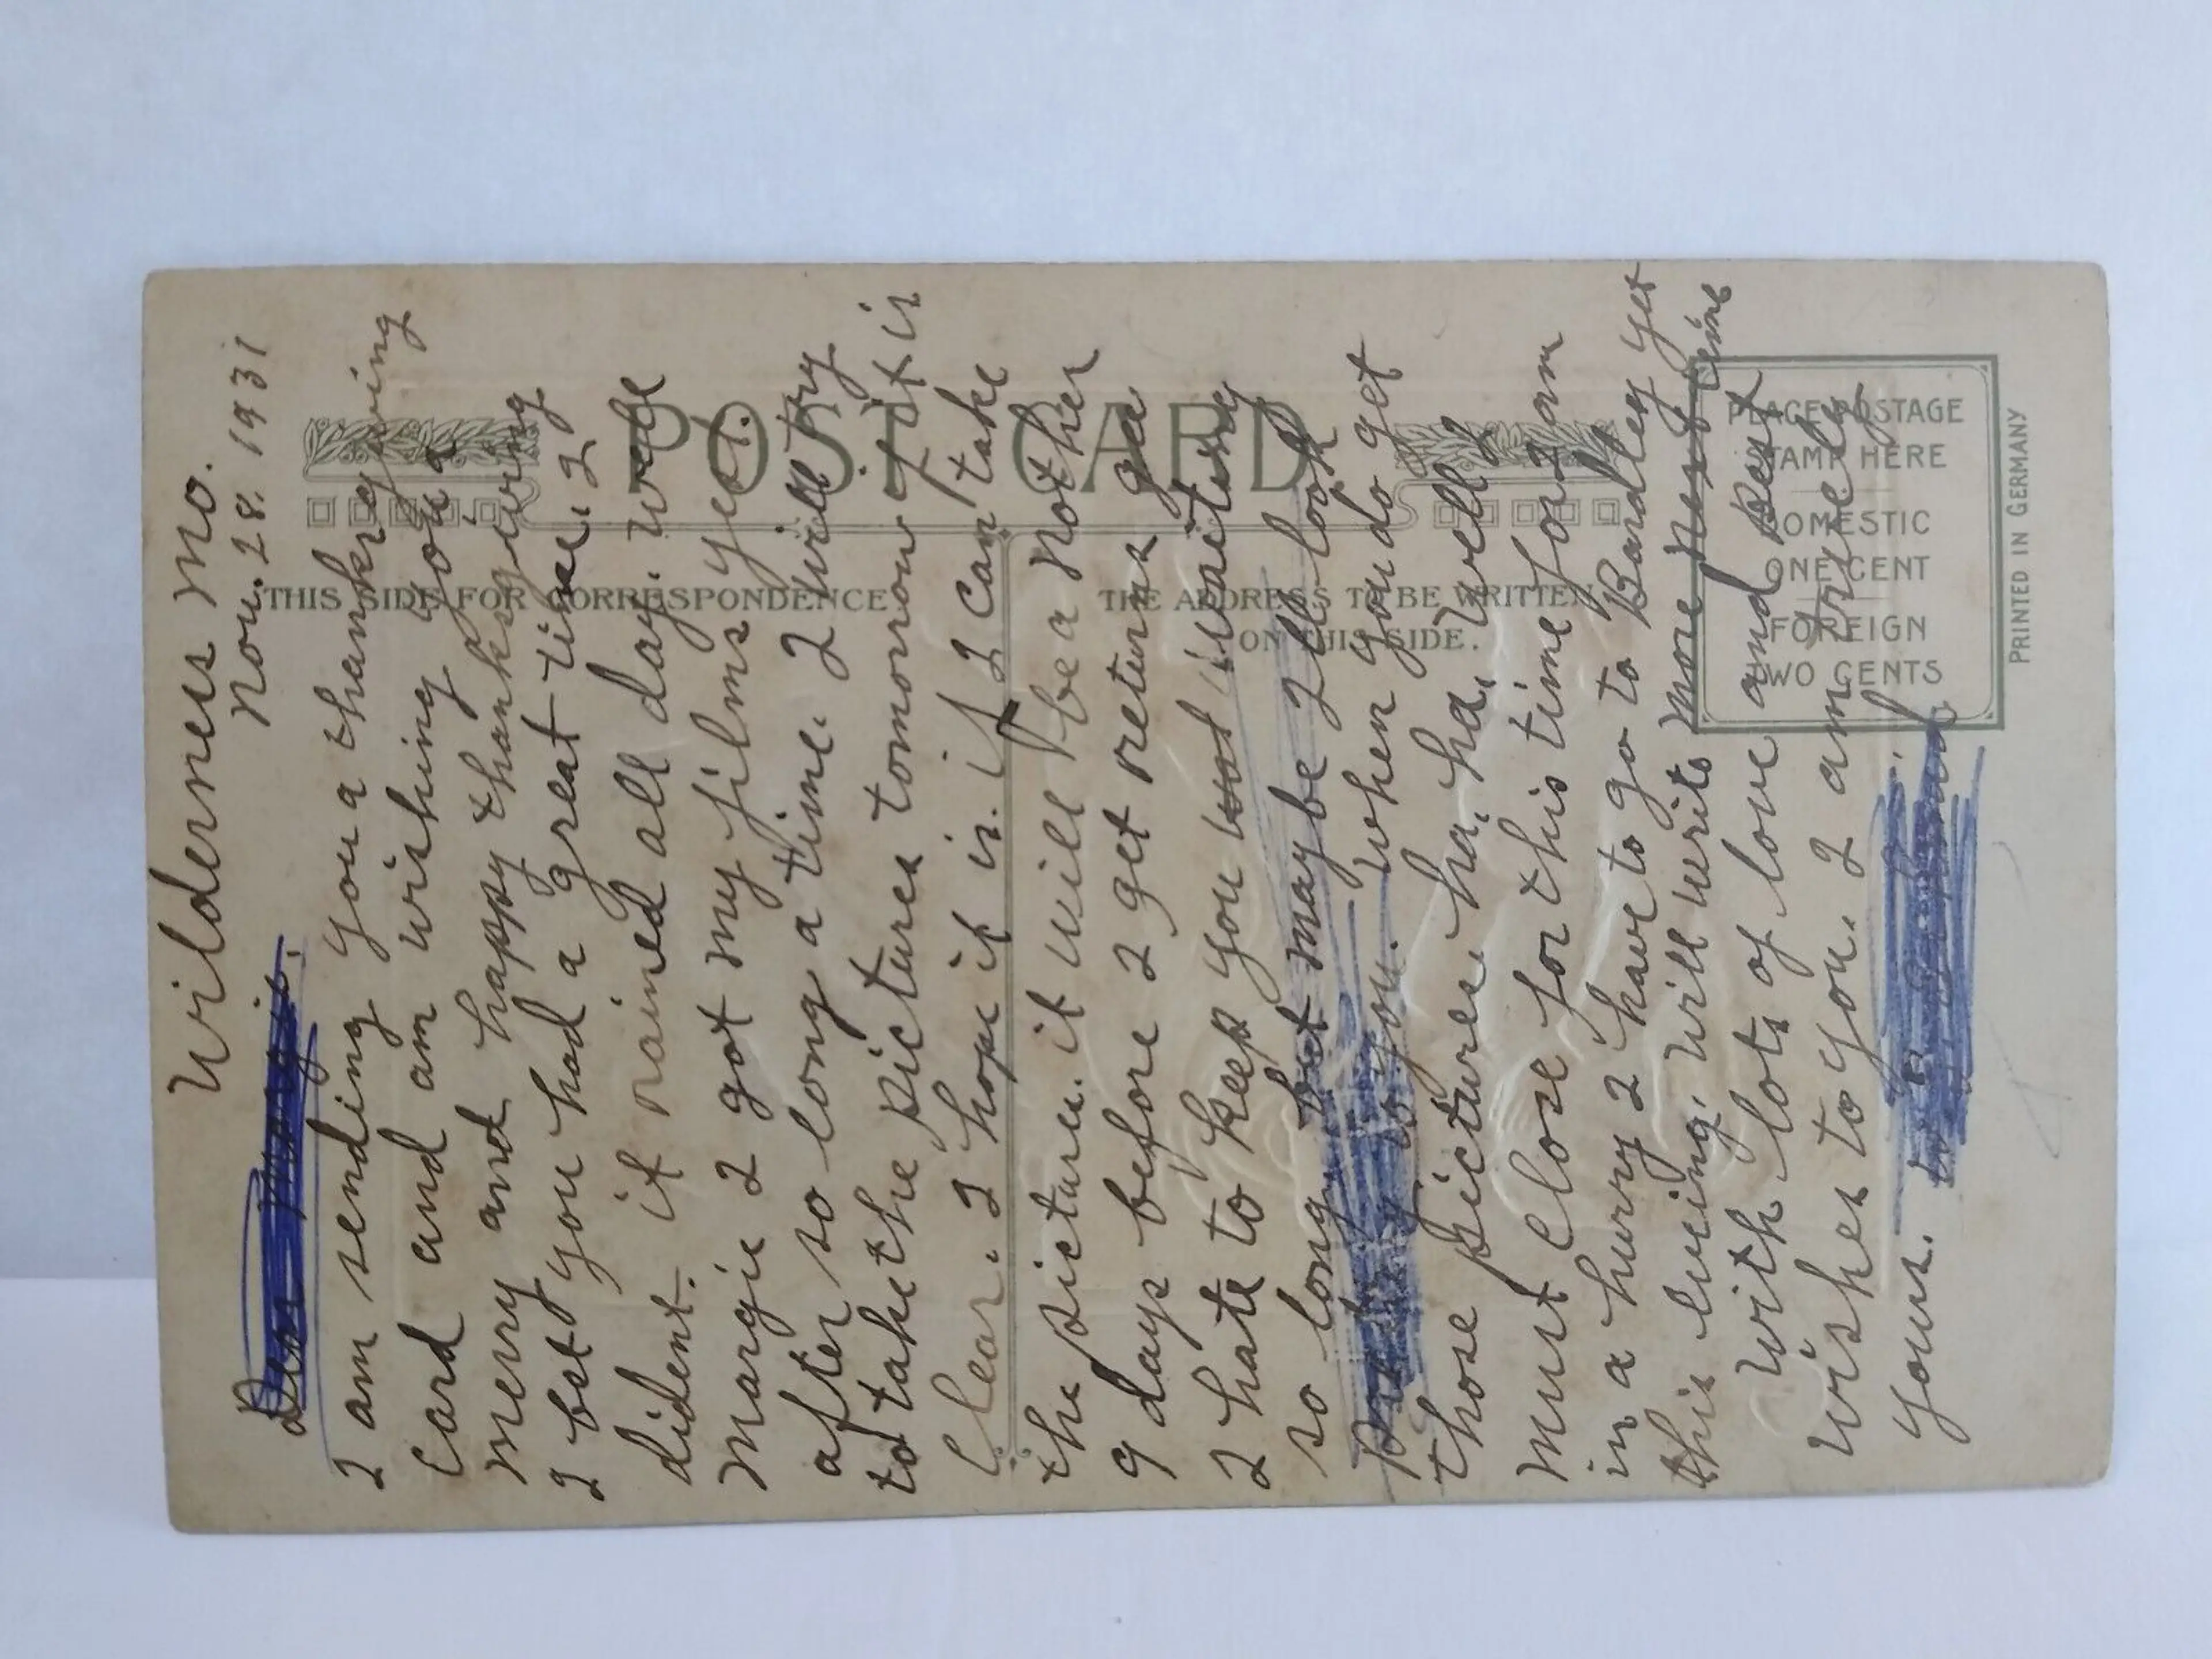 Wilderness Mo.
Nov. 28. 1931
Dear Margie.
I am sending you a thanksgiving
Card and am wishing you a
merry and happy thanksgiving
I bet you had a great time. I
dident. it rained all day. well
Margie I got my films yet.
after so long a time. I will try
to take the pictures tomorrow if it is
Clear. I hope it is. if I can take
the pictures. it will be a nother
9 days before I get returns ga
I hate to keep you waiteing
so long but maybe I'll look
to you. when you do get
those pictures. ha. ha. ha. Well I
must close for this time for I am
in a hurry I have to go to Bardley yet
this eveing. will write more next time
with lots of love and best
wishes to you. I am truely
yours.
POST CARD
THIS SIDE FOR CORRESPONDENCE
THE ADDRESS TO BE WRITTEN
ON THIS SIDE.
PLACE POSTAGE
STAMP HERE
DOMESTIC
ONE CENT
FOREIGN
TWO CENTS
PRINTED IN GERMANY